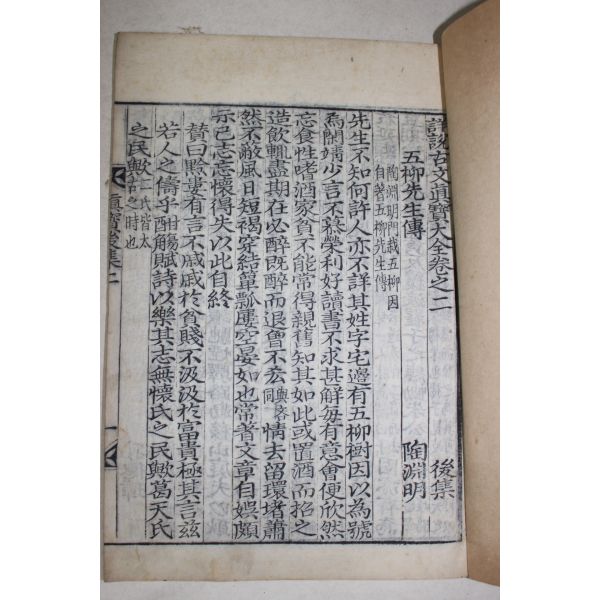 詳說古文眞寶大全卷之二 後集
五柳先生傳 陶淵明
陶淵明門栽五柳因
自著五柳先生傳
先生不知何許人亦不詳其姓字宅邊有五柳樹因以爲號
焉閑靖少言不慕榮利好讀書不求甚解每有意會便欣然
忘食性嗜酒家貧不能常得親舊知其如此或置酒而招之
造飮輒盡期在必醉旣醉而退曾不吝情去留環堵蕭
然不蔽風日短褐穿結簞瓢屢空晏如也常著文章自娛頗
示己志忘懷得失以此自終
贊曰黔婁有言不戚戚於貧賤不汲汲於富貴極其言玆
若人之儔乎酣觴賦詩以樂其志無懷氏之民歟葛天氏
之民歟二氏皆太
古之時也
眞寶後集二